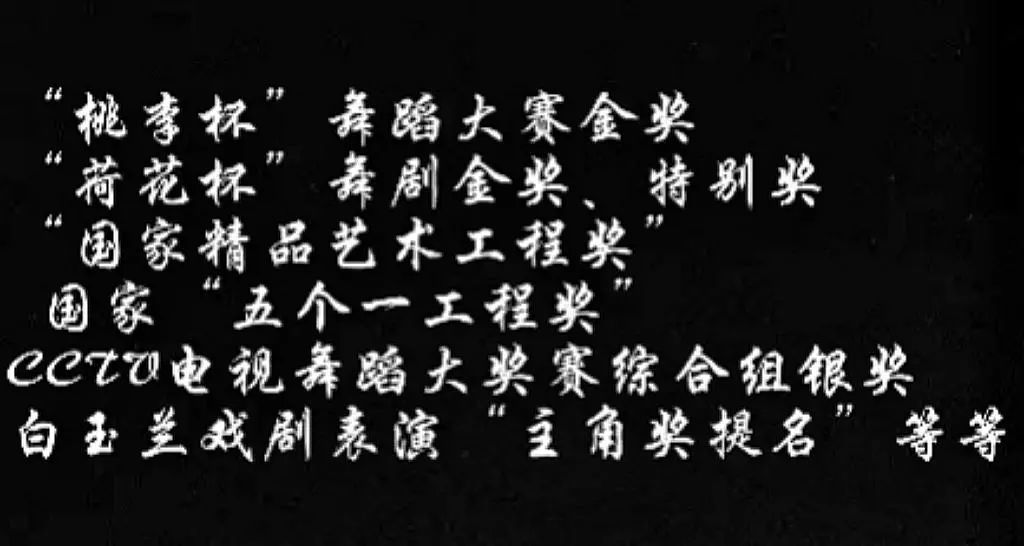 “桃李杯”舞蹈大赛金奖
“荷花杯”舞剧金奖、特别奖
“国家精品艺术工程奖”
国家“五个一工程奖”
CCTV电视舞蹈大奖赛综合组银奖
白玉兰戏剧表演“主角奖提名”等等